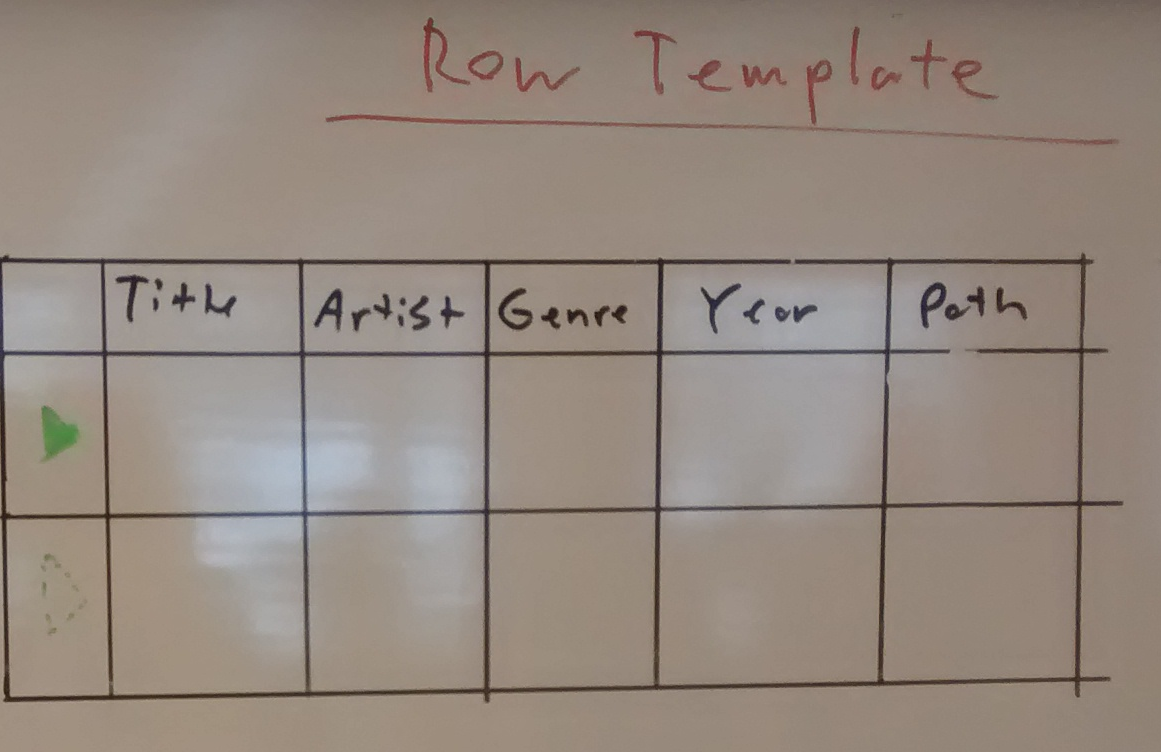 Row Template
Title Artist Genre Year Path